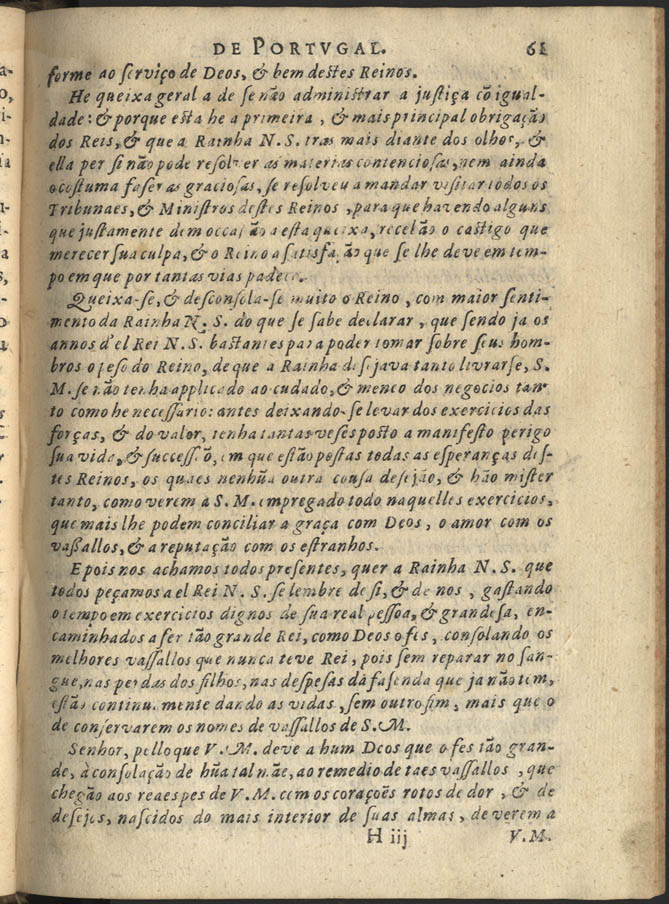 DE PORTVGAL. 61
forme ao serviço de Deos, & bem destes Reinos.
He queixa geral a de se não administrar a justiça cõ igual-
dade: & porque esta he a primeira, & mais principal obrigação
dos Reis, & que a Rainha N. S. tras mais diante dos olhos, &
ella per si não pode resolver as materias contenciosas, nem ainda
o costuma faser as graciosas, se resolveu a mandar visitar todos os
Tribunaes, & Ministros destes Reinos, para que havendo alguns
que justamente dem occasião a esta queixa, recebão o castigo que
merecer sua culpa, & o Reino a satisfação que se lhe deve em tem-
po em que por tantas vias padece.
Queixa-se, & desconsola-se muito o Reino, com maior senti-
mento da Rainha N. S. do que se sabe declarar, que sendo ja os
annos d'el Rei N. S. bastantes para poder tomar sobre seus hom-
bros o peso do Reino, de que a Rainha desejava tanto livrarse, S.
M. se não tenha applicado ao cudado, & meneo dos negocios tan-
to como he necessario: antes deixando-se levar dos exercicios das
forças, & do valor, tenha tantas veses posto a manifesto perigo
sua vida, & successão, em que estão postas todas as esperanças des-
tes Reinos, os quaes nenhũa outra cousa desejão, & hão mister
tanto, como verem a S. M. empregado todo naquelles exercicios,
que mais lhe podem conciliar a graça com Deos, o amor com os
vaßallos, & a reputação com os estranhos.
E pois nos achamos todos presentes, quer a Rainha N. S. que
todos peçamos a el Rei N. S. se lembre de si, & de nos, gastando
o tempo em exercicios dignos de sua real pessoa, & grandesa, en-
caminhados a ser tão grande Rei, como Deos o fes, consolando os
melhores vassallos que nunca teve Rei, pois sem reparar no san-
gue, nas perdas dos filhos, nas despesas da fasenda que ja não tem,
estão continuamente dando as vidas, sem outro fim, mais que o
de conservarem os nomes de vassallos de S. M.
Senhor, pello que V. M. deve a hum Deos que o fes tão gran-
de, à consolação de hũa tal mãe, ao remedio de taes vassallos, que
chegão aos reaes pes de V. M. com os corações rotos de dor, & de
desejos, nascidos do mais interior de suas almas, de verem a
H iij V. M.